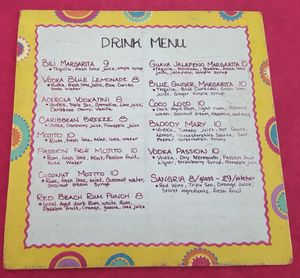 DRINK MENU
BILI MARGARITA 9
• Tequila, fresh lime juice, simple syrup
VODKA BLUE LEMONADE 8
• Vodka, fresh lime juice, Blue Curacao
Soda water
VODKATINI 8
• Vodka, Triple Sec, Grenadine, lime juice,
Caribbean cherry, Vanilla
CARIBBEAN BREEZE 8
• Vodka, Cranberry juice, Pineapple juice
MOJITO 10
• Rum, fresh lime, mint, soda water
PASSION FRUIT MOJITO 10
• Rum, fresh lime, Mint, Passion fruit,
Soda Water
COCONUT MOJITO 10
• Rum, fresh lime, mint, Coconut water
Coconut cream Syrup
RED BEACH RUM PUNCH 8
• Local Aged dark rum, white Rum,
Passion fruit, Orange, guava, lime juice
GUAVA JALAPENO MARGARITA 10
• Tequila, fresh lime
juice, Jalapeno, simple syrup
BLUE GINGER MARGARITA 10
• Tequila, Blue Curacao, fresh lime
juice, Ginger Simple syrup
COCO LOCO 10
• Dark Aged Rum, light rum, Coconut
water, Coconut cream,
BLOODY MARY 10
• Vodka, Tomato juice, Hot Sauce,
Lemon, Worcestershire Sauce, Salt,
Pepper,
PASSION VODKA 10
• Vodka, Dry Vermouth, Passion
Strawberry Syrup, Pineapple juice
SANGRIA 8/glass - 29/pitcher
• Red Wine, Triple Sec, Orange Juice
Secret ingredients, fresh fruit